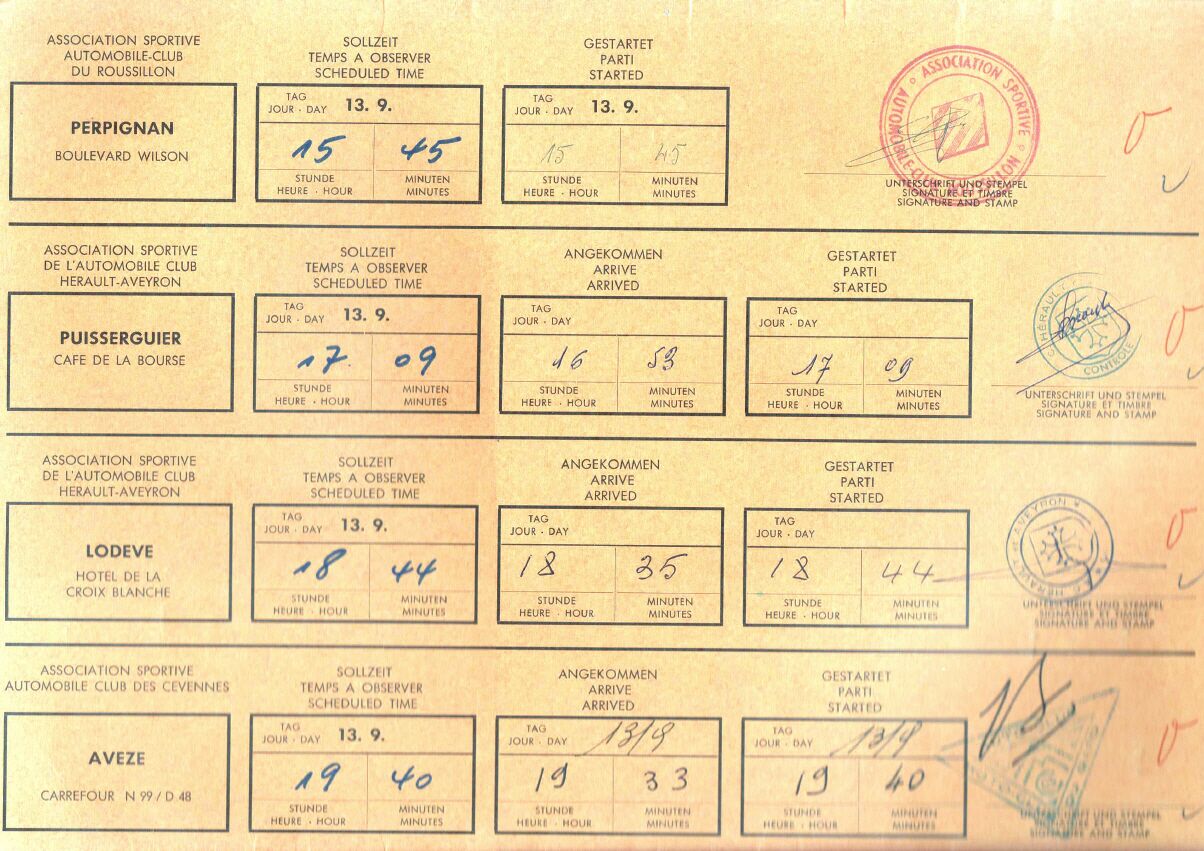 ASSOCIATION SPORTIVE
AUTOMOBILE-CLUB
DU ROUSSILLON
PERPIGNAN
BOULEVARD WILSON
SOLLZEIT
TEMPS A OBSERVER
SCHEDULED TIME
TAG
JOUR · DAY 13. 9.
15 45
STUNDE MINUTEN
HEURE · HOUR MINUTES
GESTARTET
PARTI
STARTED
TAG
JOUR · DAY 13. 9.
15 45
STUNDE MINUTEN
HEURE · HOUR MINUTES
ASSOCIATION SPORTIVE
UNTERSCHRIFT UND STEMPEL
SIGNATURE ET TIMBRE
SIGNATURE AND STAMP
0
ASSOCIATION SPORTIVE
DE L'AUTOMOBILE CLUB
HERAULT-AVEYRON
PUISSERGUIER
CAFE DE LA BOURSE
SOLLZEIT
TEMPS A OBSERVER
SCHEDULED TIME
TAG
JOUR · DAY 13. 9.
17 09
STUNDE MINUTEN
HEURE · HOUR MINUTES
ANGEKOMMEN
ARRIVE
ARRIVED
TAG
JOUR · DAY
16 53
STUNDE MINUTEN
HEURE · HOUR MINUTES
GESTARTET
PARTI
STARTED
TAG
JOUR · DAY
17 09
STUNDE MINUTEN
HEURE · HOUR MINUTES
CONTROLE
UNTERSCHRIFT UND STEMPEL
SIGNATURE ET TIMBRE
SIGNATURE AND STAMP
0
ASSOCIATION SPORTIVE
DE L'AUTOMOBILE CLUB
HERAULT-AVEYRON
LODEVE
HOTEL DE LA
CROIX BLANCHE
SOLLZEIT
TEMPS A OBSERVER
SCHEDULED TIME
TAG
JOUR · DAY 13. 9.
18 44
STUNDE MINUTEN
HEURE · HOUR MINUTES
ANGEKOMMEN
ARRIVE
ARRIVED
TAG
JOUR · DAY
18 35
STUNDE MINUTEN
HEURE · HOUR MINUTES
GESTARTET
PARTI
STARTED
TAG
JOUR · DAY
18 44
STUNDE MINUTEN
HEURE · HOUR MINUTES
UNTERSCHRIFT UND STEMPEL
SIGNATURE ET TIMBRE
SIGNATURE AND STAMP
0
ASSOCIATION SPORTIVE
AUTOMOBILE CLUB DES CEVENNES
AVEZE
CARREFOUR N 99 / D 48
SOLLZEIT
TEMPS A OBSERVER
SCHEDULED TIME
TAG
JOUR · DAY 13. 9.
19 40
STUNDE MINUTEN
HEURE · HOUR MINUTES
ANGEKOMMEN
ARRIVE
ARRIVED
TAG
JOUR · DAY 13/9
19 33
STUNDE MINUTEN
HEURE · HOUR MINUTES
GESTARTET
PARTI
STARTED
TAG
JOUR · DAY 13/9
19 40
STUNDE MINUTEN
HEURE · HOUR MINUTES
UNTERSCHRIFT UND STEMPEL
SIGNATURE ET TIMBRE
SIGNATURE AND STAMP
0